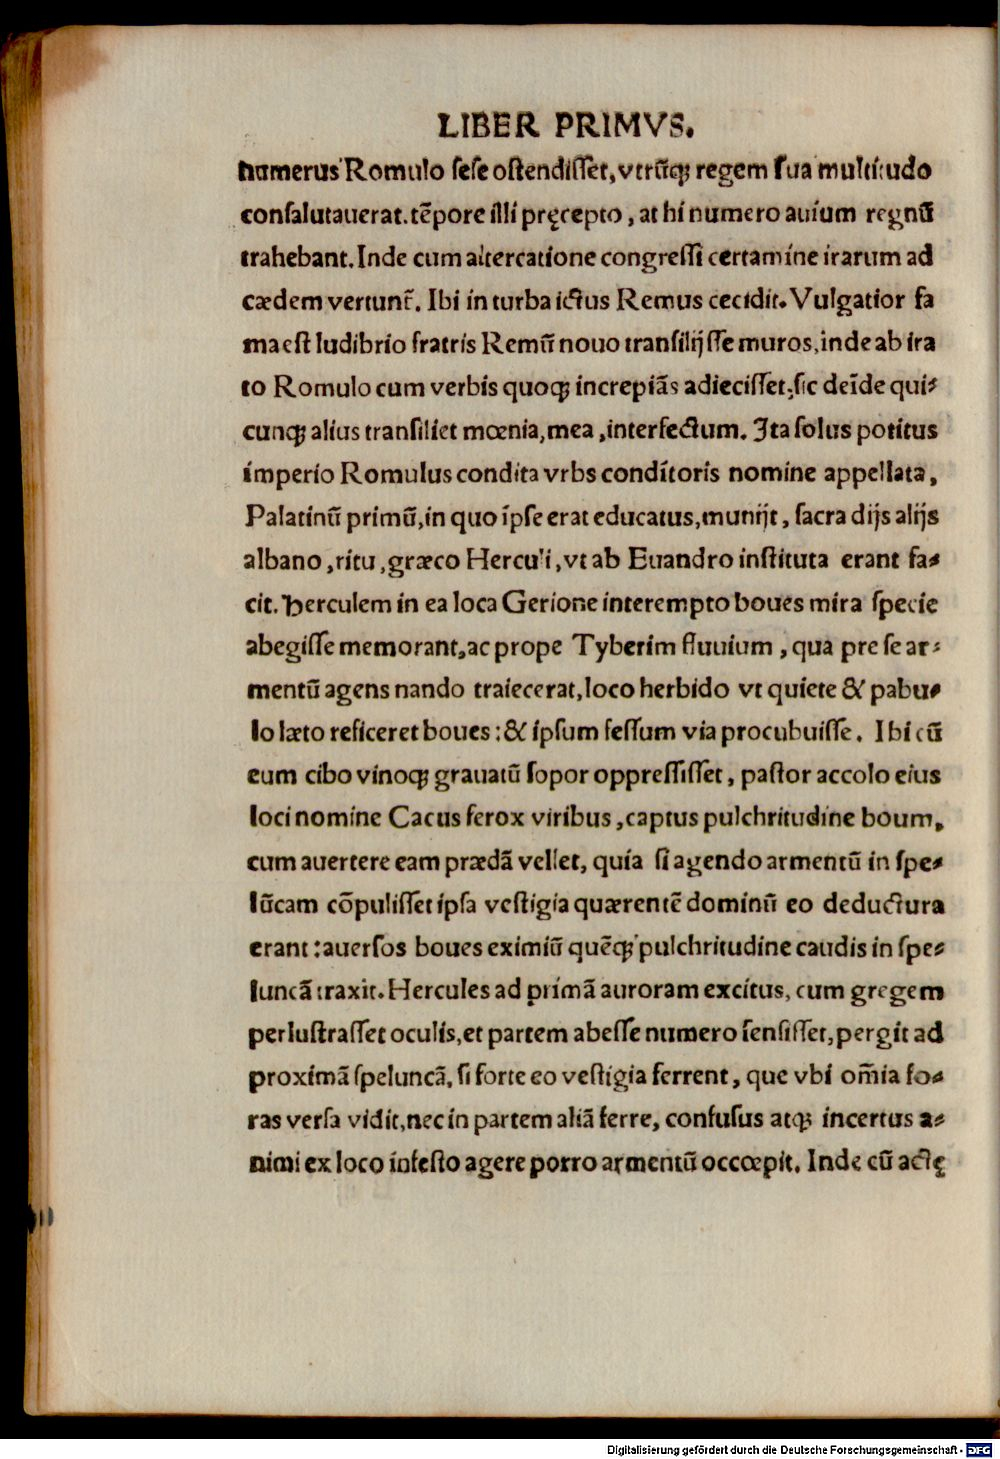 LIBER PRIMVS.
numerus Romulo seſe oſtendiſſet, vtrũq; regem ſua multitudo
conſalutauerat. tẽpore illi pręcepto, at hi numero auium regnũ
trahebant. Inde cum altercatione congreſſi certamine irarum ad
cædem vertunt̃. Ibi in turba ictus Remus cecidit. Vulgatior fa
ma eſt ludibrio fratris Remũ nouo tranſilijſſe muros, inde ab ira
to Romulo cum verbis quoq; increpiãs adieciſſet, ſic deĩde qui⸗
cunq; alius tranſiliet mœnia, mea, interfectum. Ita ſolus potitus
imperio Romulus condita vrbs conditoris nomine appellata,
Palatinũ primũ, in quo ipſe erat educatus, munijt, ſacra dijs alijs
albano, ritu, græco Herculi, vt ab Euandro inſtituta erant fa⸗
cit. Herculem in ea loca Gerione interempto boues mira ſpecie
abegiſſe memorant, ac prope Tyberim fluuium, qua pre ſe ar⸗
mentũ agens nando traiecerat, loco herbido vt quiete & pabu⸗
lo læto reficeret boues: & ipſum feſſum via procubuiſſe. Ibi cũ
eum cibo vinoq; grauatũ ſopor oppreſſiſſet, paſtor accolo eius
loci nomine Cacus ferox viribus, captus pulchritudine boum,
cum auertere eam prædã vellet, quia ſi agendo armentũ in ſpe⸗
lũcam cõpuliſſet ipſa veſtigia quærentẽ dominũ eo deductura
erant: auerſos boues eximiũ quẽq; pulchritudine caudis in ſpe⸗
luncã traxit. Hercules ad primã auroram excitus, cum gregem
perluſtraſſet oculis, et partem abeſſe numero ſenſiſſet, pergit ad
proximã ſpeluncã, ſi forte eo veſtigia ferrent, que vbi om̃ia fo⸗
ras verſa vidit, nec in partem aliã ferre, confuſus atq; incertus a⸗
nimi ex loco infeſto agere porro armentũ occœpit. Inde cũ actę
Digitalisierung gefördert durch die Deutsche Forschungsgemeinschaft - DFG